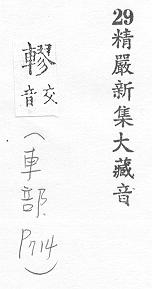 29精嚴新集大藏音
轇
音交
（車部P714）